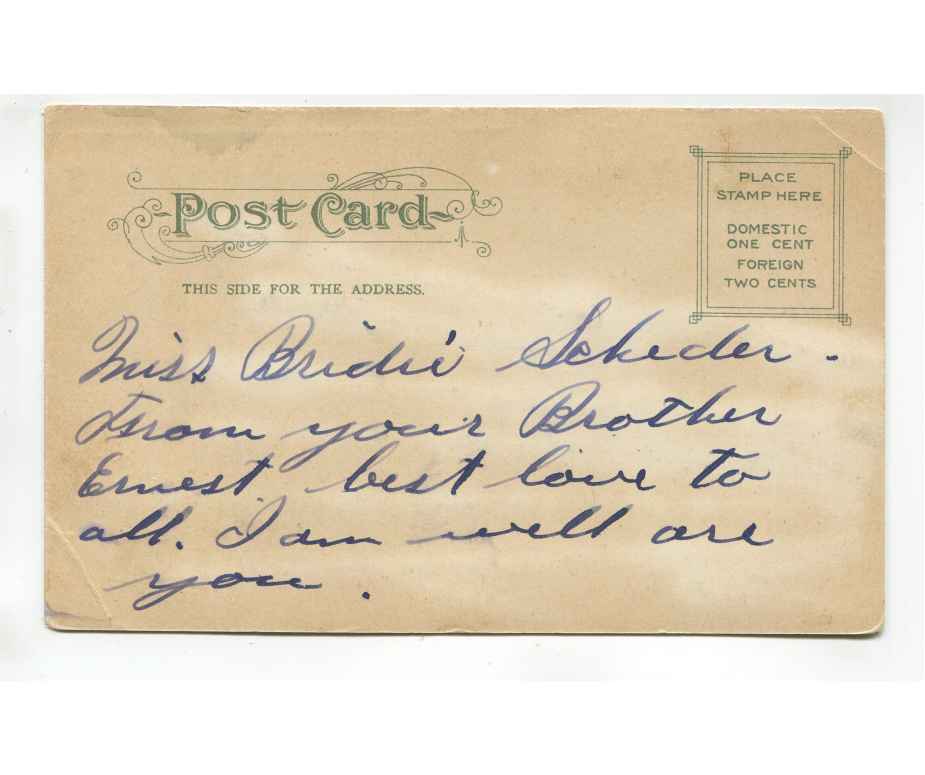 Post Card
THIS SIDE FOR THE ADDRESS.
PLACE
STAMP HERE
DOMESTIC
ONE CENT
FOREIGN
TWO CENTS
Miss Bridie Scheder.
From your Brother
Ernest best love to
all. I am well are
you.